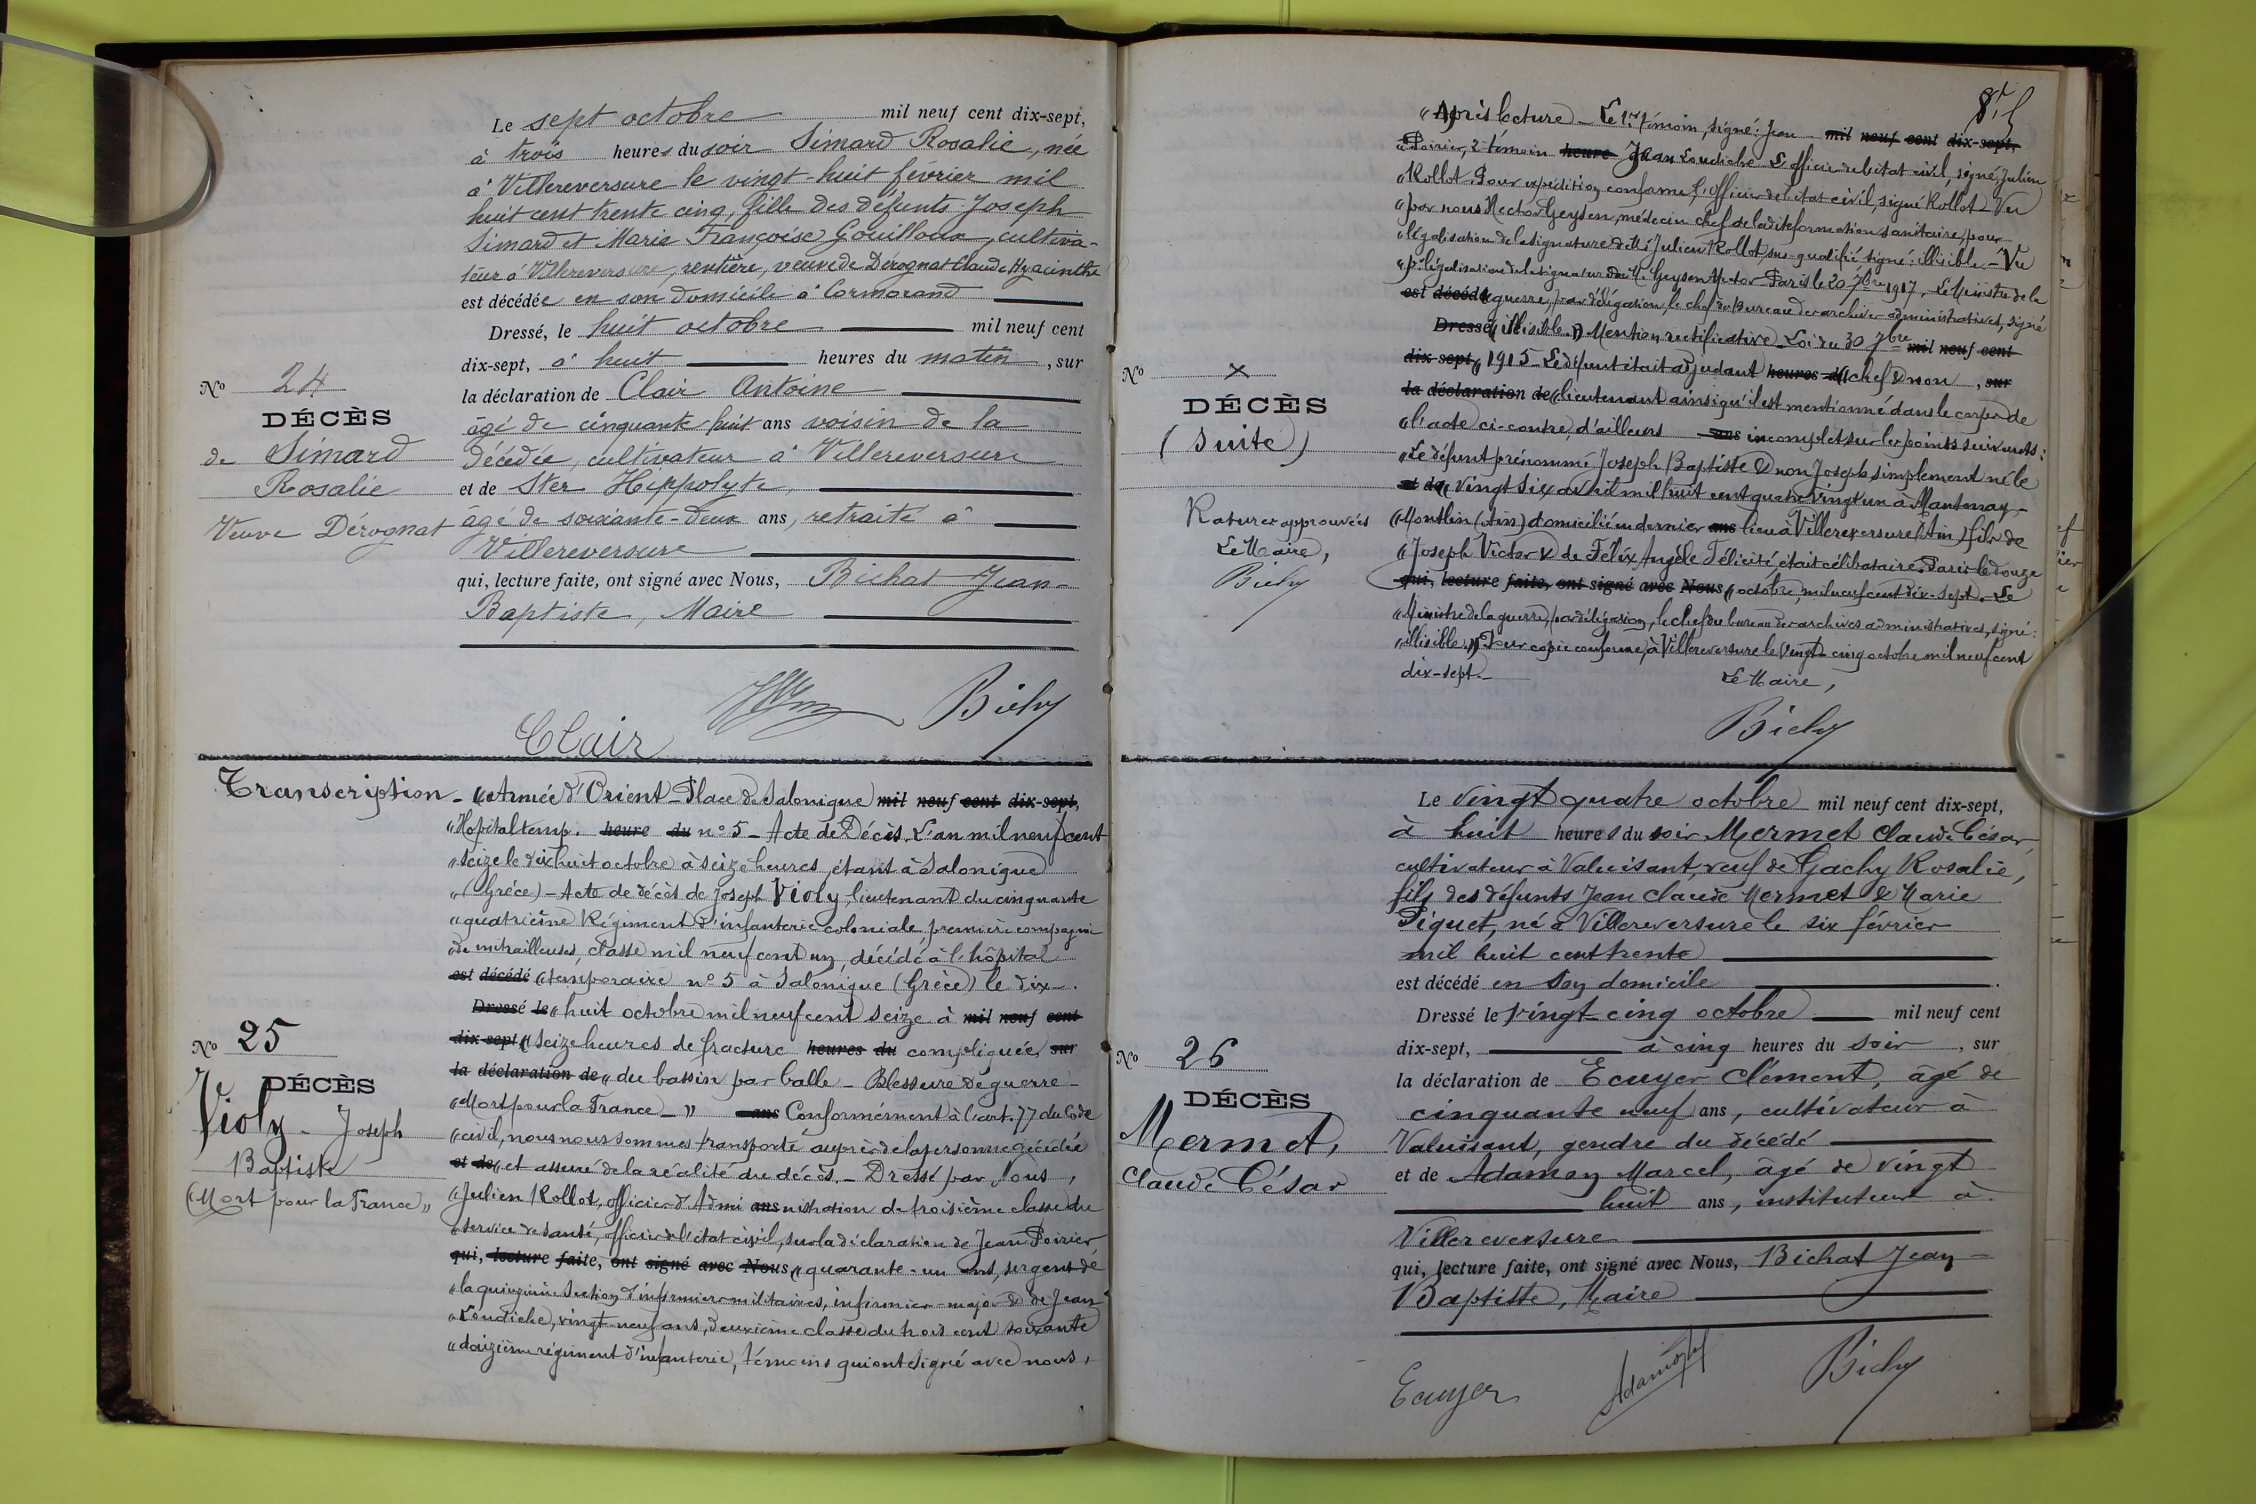 Le sept octobre mil neuf cent dix-sept,
à trois heures du soir Simard Rosalie, née
à Villereversure le vingt-huit février mil
huit cent trente cinq, fille des défunts Joseph
Simard et Marie Françoise Gouilloux, cultiva-
teur à Villereversure, rentière, veuve de Dérognat Claude Hyacinthe
est décédée en son domicile à Cormorand
Dressé, le huit octobre mil neuf cent
dix-sept, à huit heures du matin, sur
la déclaration de Clair Antoine
âgé de cinquante huit ans voisin de la
décédée, cultivateur à Villereversure
et de Ster Hippolyte,
âgé de soixante-deux ans, retraité à
Villereversure
qui, lecture faite, ont signé avec Nous, Bichat Jean-
Baptiste, Maire
No 24
DÉCÈS
de Simard
Rosalie
Veuve Dérognat
Clair
Transcription - "Armée d'Orient - Place de Salonique mil neuf cent dix-sept,
"Hopital temp. heure du no 5 - Acte de Décès. L'an mil neuf cent
"seize le dix huit octobre à seize heures, étant à Salonique
"(Grèce) - Acte de décès de Joseph Violy, lieutenant du cinquante
"quatrième Régiment d'infanterie coloniale première compagnie
"de mitrailleuses, classe mil neuf cent un, décédé à l'hôpital
est décédé "temporaire no 5 à Salonique (Grèce) le dix-
Dressé le "huit octobre mil neuf cent seize à mil neuf cent
dix-sept "seize heures de fracture heures du compliquée sur
la déclaration de "du bassin par balle - Blessure de guerre -
"Mort pour la France - " ans Conformément à l'art. 77 du Code
"civil, nous nous sommes transporté auprès de la personne décédée
et de "et assuré de la réalité du décès. - Dressé par Nous,
"Julien Rollot, officier d'Admi ans nistration de troisième classe du
"service de santé, officier de l'état civil, sur la déclaration de Jean Poirier
qui, lecture faite, ont signé avec Nous "quarante-un ans, sergent de
"la quinzième Section d'infirmiers militaires, infirmier-major & de Jean
"Loudiche, vingt-neuf ans, deuxième classe du trois cent soixante
"douzième régiment d'infanterie, témoins qui ont signé avec nous,
No 25
DÉCÈS
Violy - Joseph
Baptiste
(Mort pour la France"
"Après lecture - Le 1er témoin, signé: Jean mil neuf cent dix-sept,
"Poirier, 2e témoin heure Jean Loudiche L'officier de l'état civil, signé, Julien
"Rollot. Pour expédition conforme, l'officier de l'état civil, signé Rollot - Vu
"par nous Hector Geysen, médecin chef de ladite formation sanitaire, pour
"légalisation de la signature de M. Julien Rollot, sus-qualifié signé: illisible. - Vu
"pr légalisation de la signature de M. Geysen Hector Paris le 20 7bre 1917. Le Ministre de la
est décédé "guerre, par délégation, le chef du Bureau des archives administratives, signé
Dressé "illisible." Mention rectificative - Loi du 30 7bre mil neuf cent
dix-sept "1915 - Le défunt était adjudant heures du chef & non, sur
la déclaration de "lieutenant ainsi qu'il est mentionné dans le corps de
"l'acte ci-contre, d'ailleurs ans incomplet sur les points suivants:
"Le défunt prénommé Joseph Baptiste & non Joseph simplement né le
et de "vingt six avril mil huit cent quatre vingt un à Mantenay-
"Montlin (Ain) domicilié en dernier ans lieu à Villereversure (Ain) fils de
"Joseph Victor & de Félix Angèle Félicité, était célibataire. Paris le douze
qui, lecture faite, ont signé avec Nous "octobre, mil neuf cent dix-sept. - Le
"Ministre de la guerre, par délégation, le chef du bureau des archives administratives, signé:
"illisible." Pour copie conforme, à Villereversure le vingt-cinq octobre mil neuf cent
dix-sept. -
Le Maire,
No ×
DÉCÈS
(Suite)
Ratures approuvées
Le Maire,
Le vingt quatre octobre mil neuf cent dix-sept,
à huit heures du soir Mermet Claude César,
cultivateur à Valuisant, veuf de Gachy Rosalie,
fils des défunts Jean Claude Mermet & Marie
Piquet, né à Villereversure le six février
mil huit cent trente
est décédé en son domicile
Dressé le vingt-cinq octobre mil neuf cent
dix-sept, à cinq heures du soir, sur
la déclaration de Ecuyer Clément, âgé de
cinquante neuf ans, cultivateur à
Valuisant, gendre du décédé
et de Adamon Marcel, âgé de vingt
huit ans, instituteur à
Villereversure
qui, lecture faite, ont signé avec Nous, Bichat Jean-
Baptiste, Maire
No 26
DÉCÈS
Mermet,
Claude César
Ecuyer